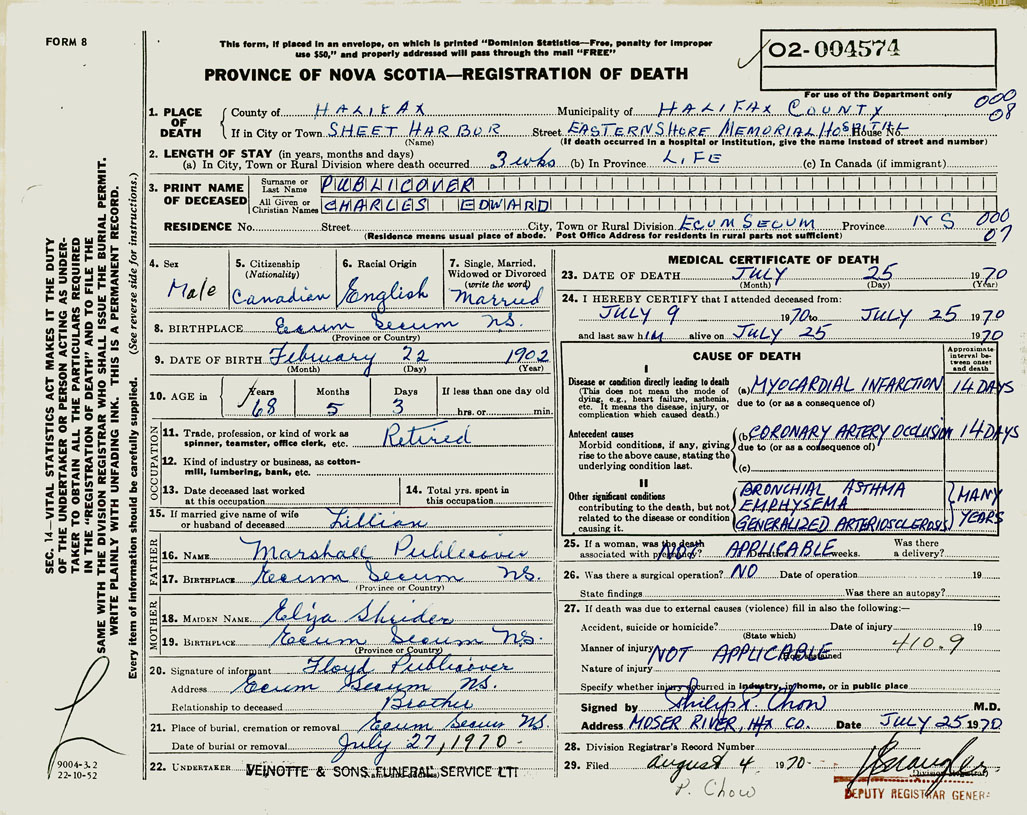 FORM 8
This form, if placed in an envelope, on which is printed "Dominion Statistics—Free, penalty for improper
use $50," and properly addressed will pass through the mail "FREE"
PROVINCE OF NOVA SCOTIA—REGISTRATION OF DEATH
02-004574
For use of the Department only
000
08
1. PLACE OF DEATH
County of HALIFAX Municipality of HALIFAX COUNTY
If in City or Town SHEET HARBOR Street EASTERN SHORE MEMORIAL HOSPITAL House No.
(Name) (If death occurred in a hospital or institution, give the name instead of street and number)
2. LENGTH OF STAY (in years, months and days)
(a) In City, Town or Rural Division where death occurred 3 wks (b) In Province LIFE (c) In Canada (if immigrant)
3. PRINT NAME OF DECEASED
Surname or Last Name PUBLICOVER
All Given or Christian Names CHARLES EDWARD
RESIDENCE No. Street City, Town or Rural Division ECUM SECUM Province NS 000
(Residence means usual place of abode. Post Office Address for residents in rural parts not sufficient) 07
4. Sex Male
5. Citizenship (Nationality) Canadian
6. Racial Origin English
7. Single, Married, Widowed or Divorced (write the word) Married
8. BIRTHPLACE Ecum Secum NS.
(Province or Country)
9. DATE OF BIRTH February 22 1902
(Month) (Day) (Year)
10. AGE in Years Months Days If less than one day old
68 5 3 hrs. or min.
OCCUPATION
11. Trade, profession, or kind of work as spinner, teamster, office clerk, etc. Retired
12. Kind of industry or business, as cotton-mill, lumbering, bank, etc.
13. Date deceased last worked at this occupation
14. Total yrs. spent in this occupation
15. If married give name of wife or husband of deceased Lillian
FATHER
16. NAME Marshall Publicover
17. BIRTHPLACE Ecum Secum NS.
(Province or Country)
MOTHER
18. MAIDEN NAME Eliza
19. BIRTHPLACE Ecum Secum N.S.
(Province or Country)
20. Signature of informant Floyd Publicover
Address Ecum Secum NS.
Relationship to deceased Brother
21. Place of burial, cremation or removal Ecum Secum NS.
Date of burial or removal July 27, 1970
22. UNDERTAKER VEINOTTE & SONS FUNERAL SERVICE LTD
MEDICAL CERTIFICATE OF DEATH
23. DATE OF DEATH JULY 25 1970
(Month) (Day) (Year)
24. I HEREBY CERTIFY that I attended deceased from:
JULY 9 1970 to JULY 25 1970
and last saw him alive on JULY 25 1970
CAUSE OF DEATH
Approximate interval between onset and death
I
Disease or condition directly leading to death
(This does not mean the mode of dying, e.g., heart failure, asthenia, etc. It means the disease, injury, or complication which caused death.)
(a) MYOCARDIAL INFARCTION 14 DAYS
due to (or as a consequence of)
Antecedent causes
Morbid conditions, if any, giving rise to the above cause, stating the underlying condition last.
(b) CORONARY ARTERY OCCLUSION 14 DAYS
due to (or as a consequence of)
(c)
II
Other significant conditions
contributing to the death, but not related to the disease or condition causing it.
BRONCHIAL ASTHMA
EMPHYSEMA
GENERALIZED ARTERIOSCLEROSIS
MANY YEARS
25. If a woman, was the death associated with pregnancy? NOT APPLICABLE Duration weeks. Was there a delivery?
26. Was there a surgical operation? NO Date of operation 19
State findings Was there an autopsy?
27. If death was due to external causes (violence) fill in also the following:—
Accident, suicide or homicide? Date of injury 19
(State which)
Manner of injury NOT APPLICABLE 410.9
Nature of injury
Specify whether injury occurred in industry, in home, or in public place
Signed by Philip P. Chow M.D.
Address MOSER RIVER, HFX CO. Date JULY 25 1970
28. Division Registrar's Record Number
29. Filed August 4 1970
(Division Registrar)
P. Chow
DEPUTY REGISTRAR GENER
SEC. 14—VITAL STATISTICS ACT MAKES IT THE DUTY
OF THE UNDERTAKER OR PERSON ACTING AS UNDER-
TAKER TO OBTAIN ALL THE PARTICULARS REQUIRED
IN THE "REGISTRATION OF DEATH" AND TO FILE THE
SAME WITH THE DIVISION REGISTRAR WHO SHALL ISSUE THE BURIAL PERMIT.
WRITE PLAINLY WITH UNFADING INK. THIS IS A PERMANENT RECORD.
Every item of information should be carefully supplied. (See reverse side for instructions.)
9004-3.2
22-10-52